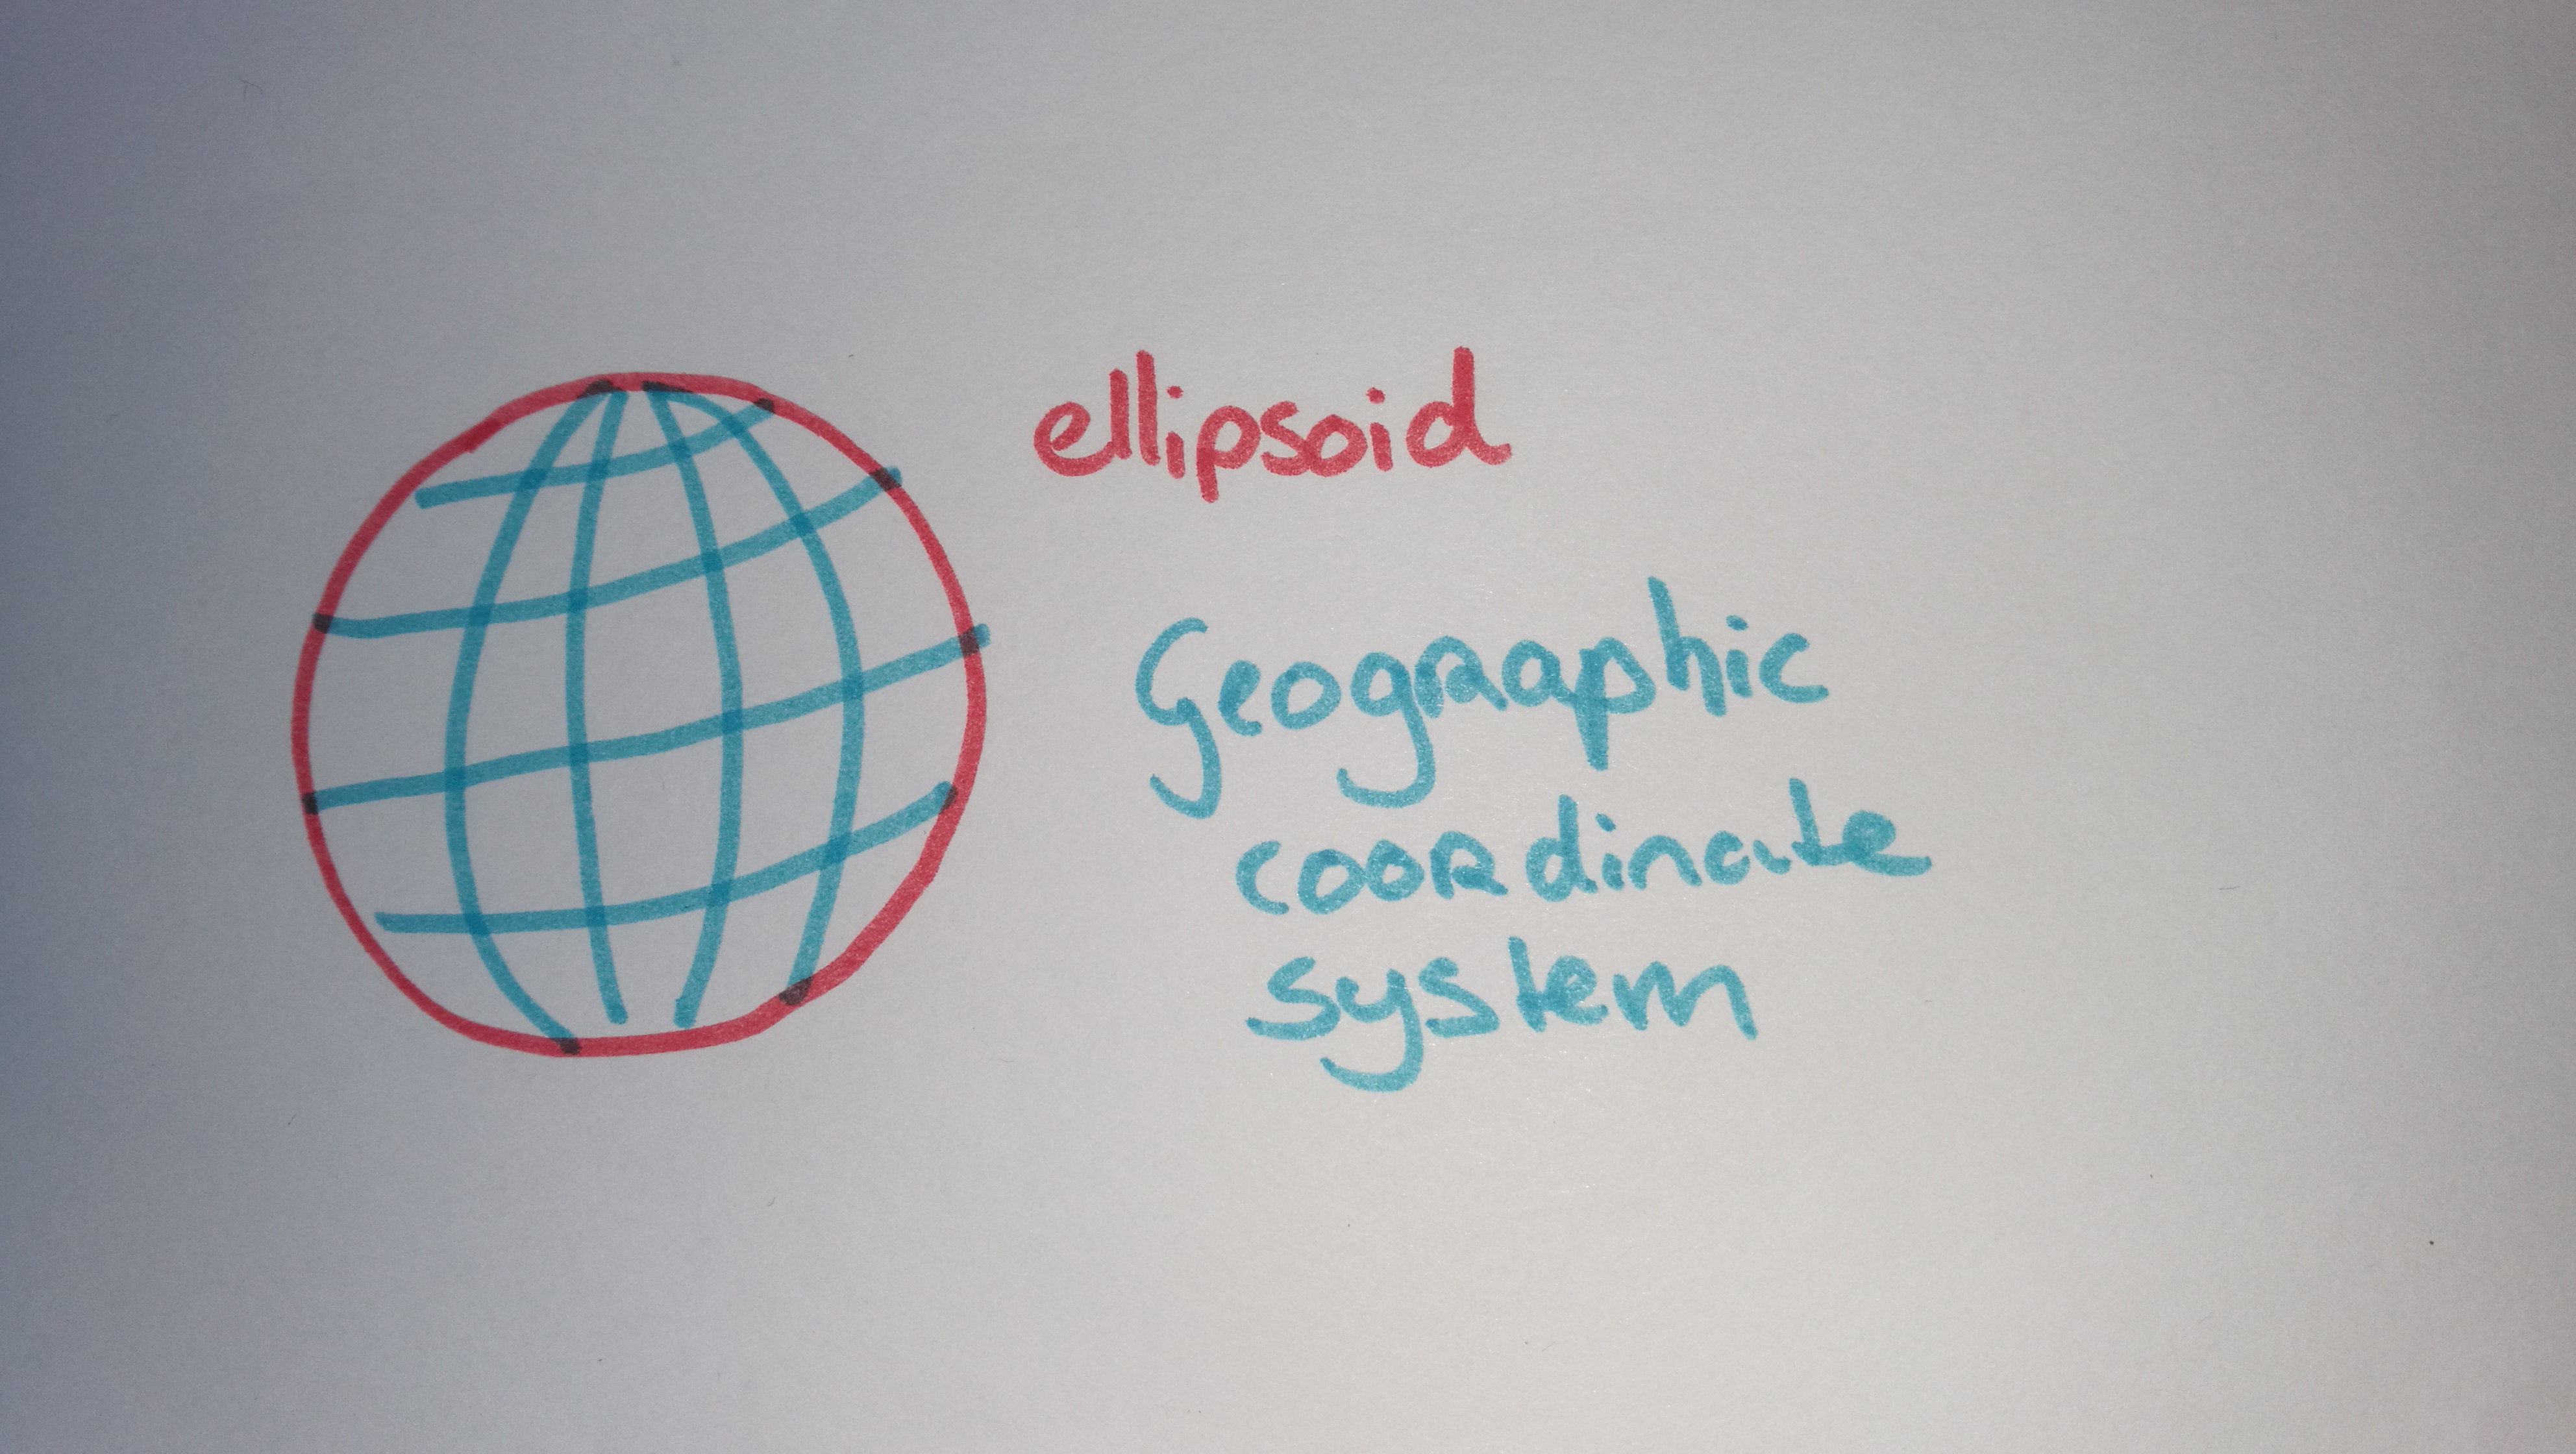 ellipsoid
Geographic
coordinate
system